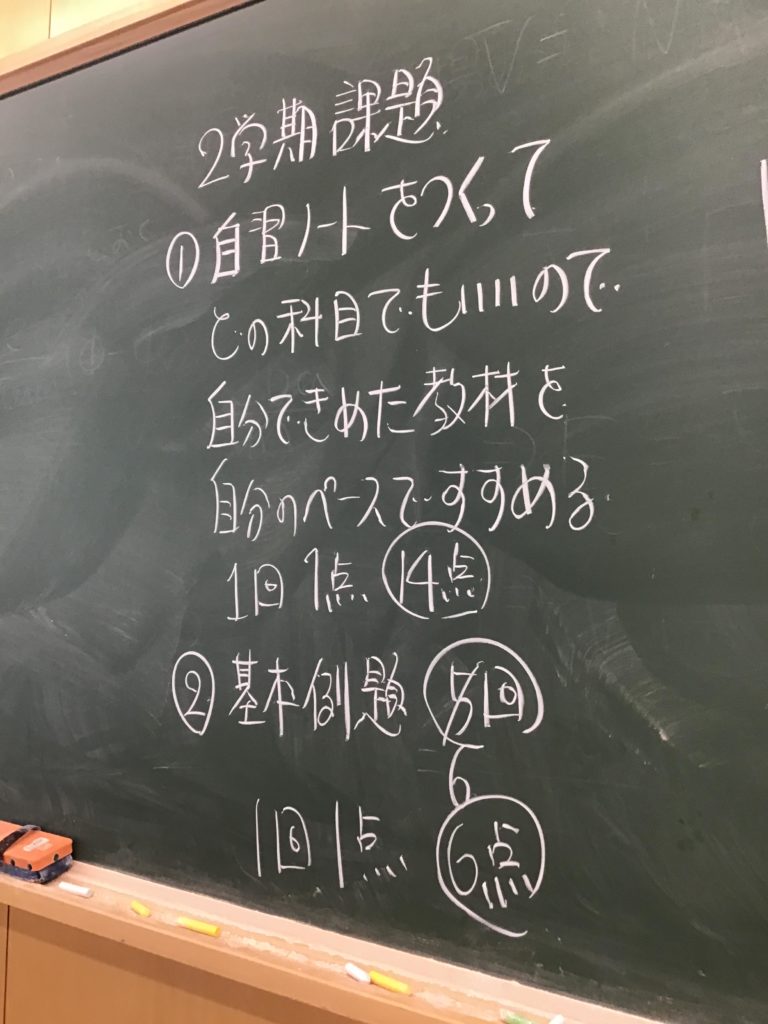 2学期課題
①自習ノートをつくって
どの科目でもいいので
自分できめた教材を
自分のペースですすめる
1回1点 14点
②基本例題 5回
6
1回1点 6点